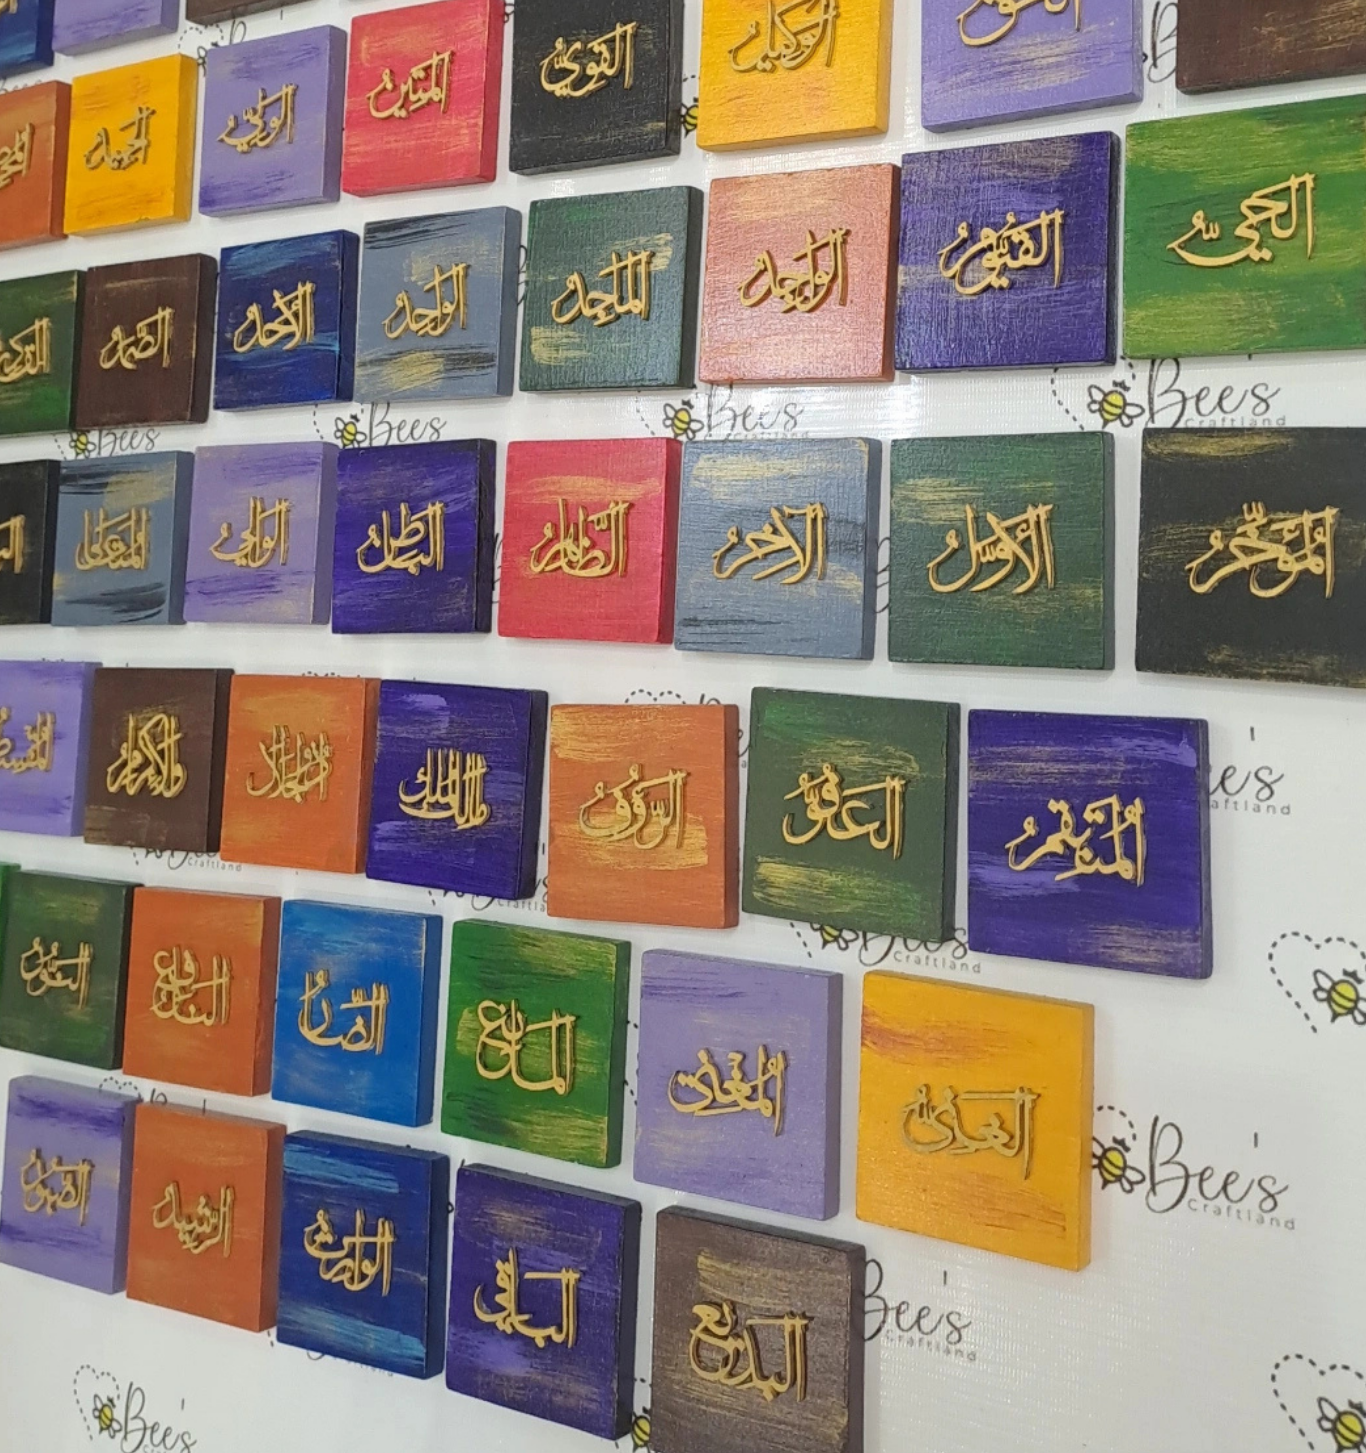 الوكيل
القوي
المتين
الولي
الحميد
الحي
القيوم
الواجد
الماجد
الواحد
الأحد
الصمد
المؤخر
الأول
الآخر
الظاهر
الباطن
الوالي
المتعالي
المنتقم
العفو
الرؤوف
مالك الملك
ذو الجلال
والإكرام
المقسط
الغني
المغني
المانع
الضار
النافع
النور
البديع
الباقي
الوارث
الرشيد
الصبور
Bee's
Craftland
Bee's
Craftland
Bee's
Craftland
Bee's
Craftland
Bee's
Craftland
Bee's